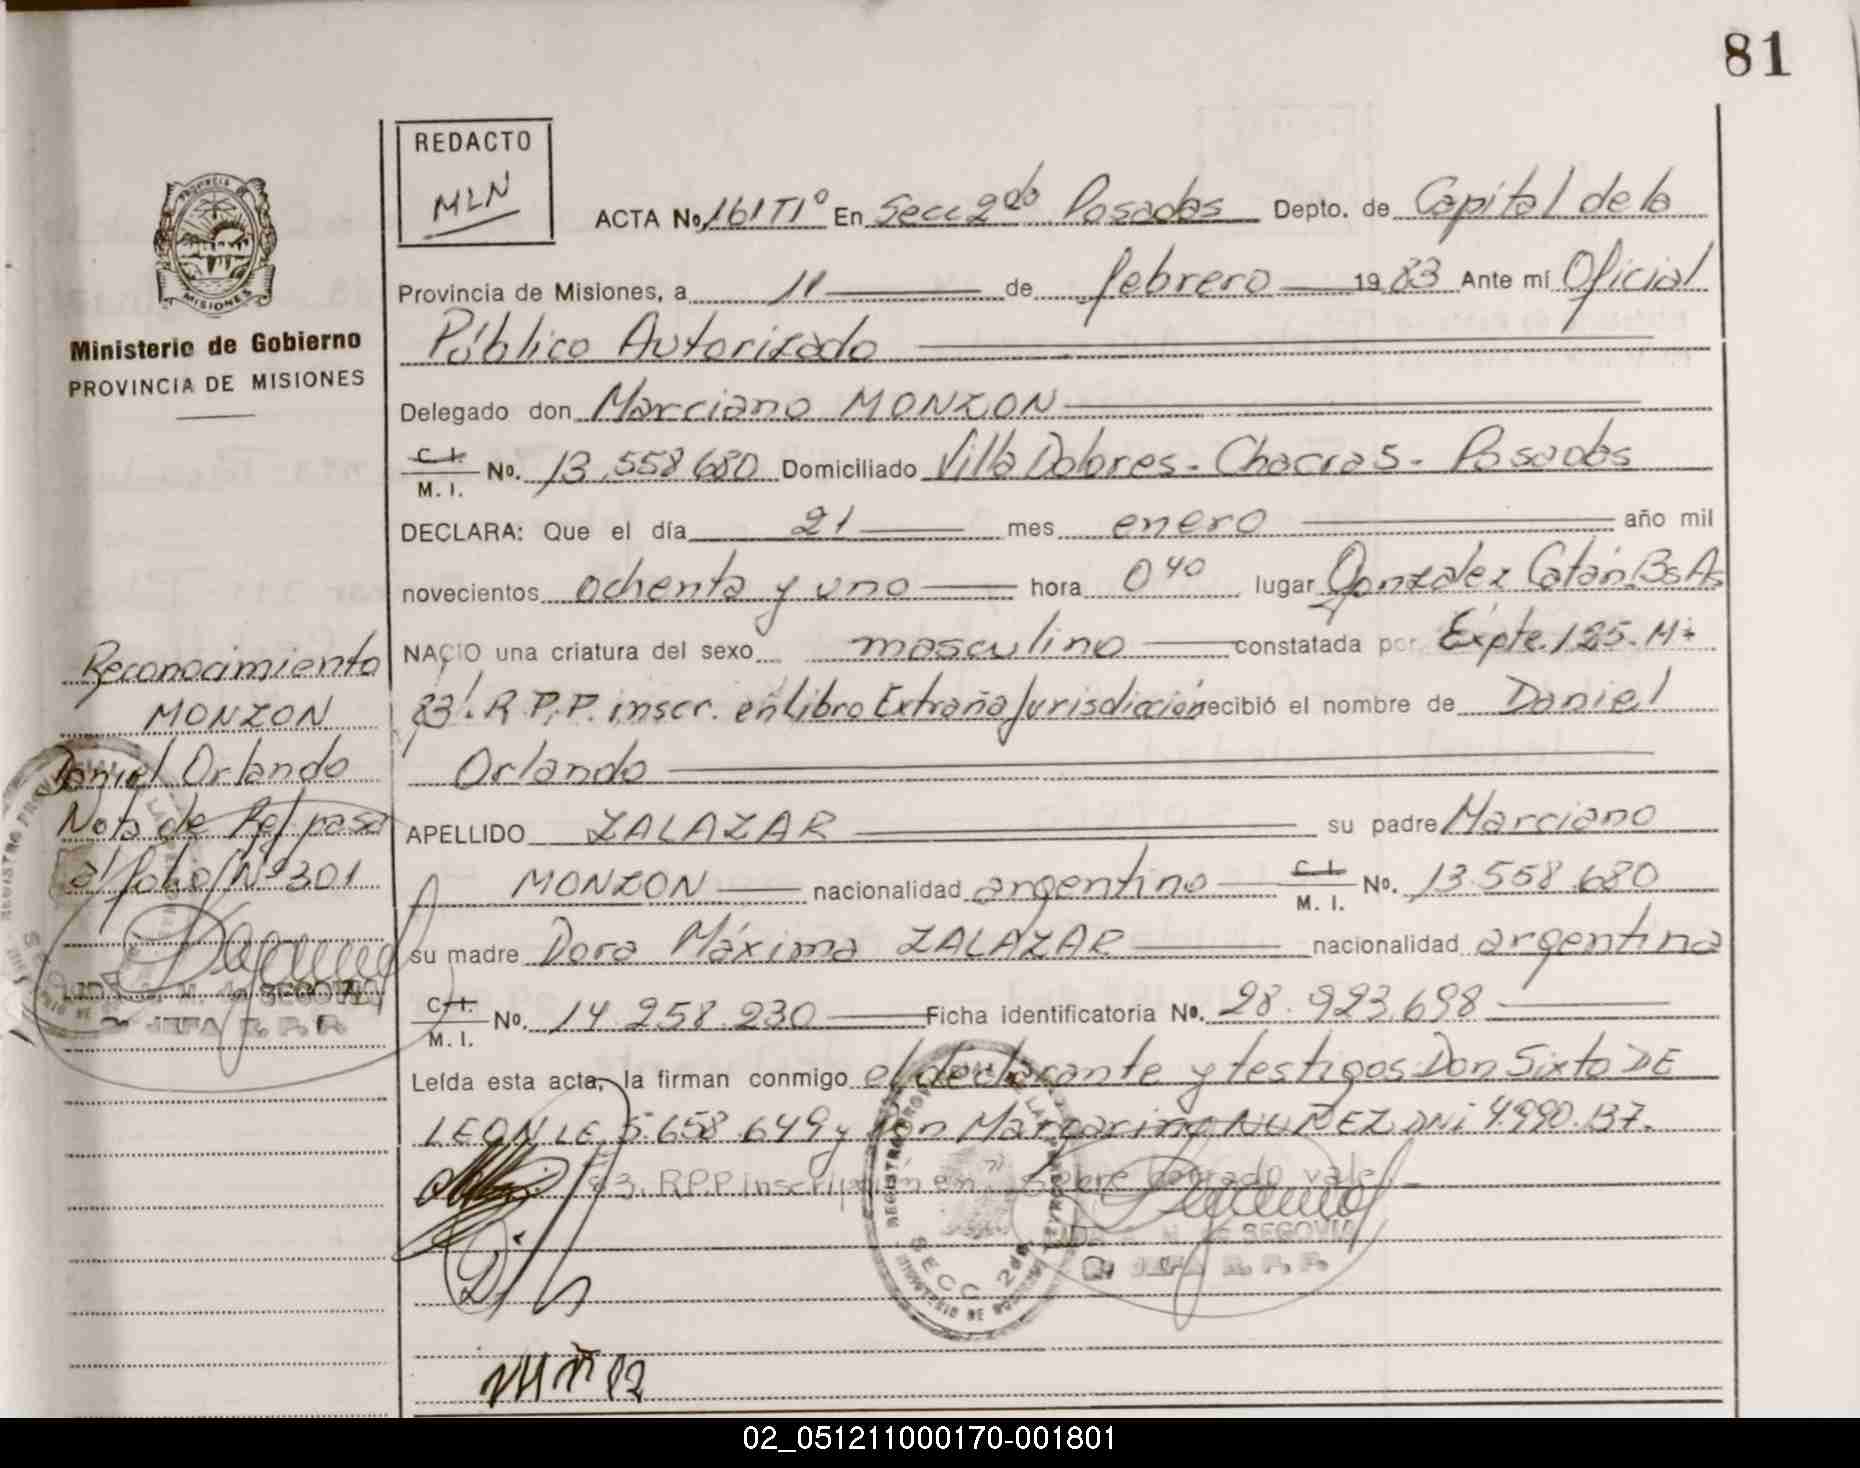 81
REDACTO
MLN
PROVINCIA DE
MISIONES
Ministerio de Gobierno
PROVINCIA DE MISIONES
ACTA No. 161 T1º En Secc 2da Posadas Depto. de Capital de la
Provincia de Misiones, a 11 de febrero 1983 Ante mí Oficial
Público Autorizado
Delegado don Marciano MONZON
C. I. M. I. No. 13.558.680 Domiciliado Villa Dolores - Chacra 5 - Posadas
DECLARA: Que el día 21 mes enero año mil
novecientos ochenta y uno hora 0 40 lugar Gonzalez Catán, Bs As
NACIO una criatura del sexo masculino constatada por Expte. 125. M-
83'. R.P.P. inscr. en Libro Extraña Jurisdicción recibió el nombre de Daniel
Orlando
APELLIDO ZALAZAR su padre Marciano
MONZON nacionalidad argentino C. I. M. I. No. 13.558.680
su madre Dora Máxima ZALAZAR nacionalidad argentina
C. I. M. I. No. 14.258.230 Ficha identificatoria No. 28.923.698
Leída esta acta, la firman conmigo el declarante y testigos Don Sixto DE
LEON LE 5.658.649 y Don Margarino NUÑEZ DNI 4.990.137.
83. R.P.P inscripción en, sobre borrado vale
DE SEGOVIA
JEFA R. P. P.
SECC 2da
Reconocimiento
MONZON
Daniel Orlando
Nota de Ref pasa
al folio Nº 301
M. de SEGOVIA
JEFA R. P. P.
02_051211000170-001801